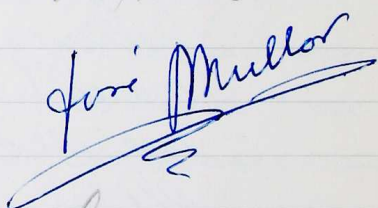 José Mullor